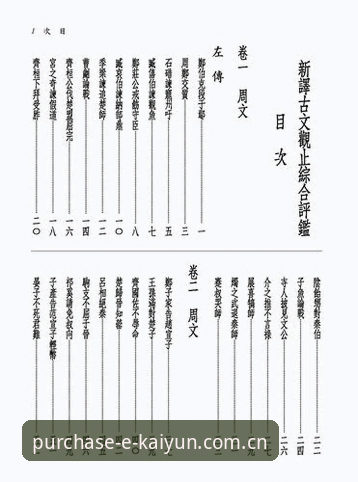 1 次 目
新譯古文觀止綜合評鑑
目次
卷一 周文
左傳
鄭伯克段于鄢 一
周鄭交質 三
石碏諫寵州吁 五
臧僖伯諫觀魚 七
鄭莊公戒飭守臣 八
臧哀伯諫納郜鼎 一〇
季梁諫追楚師 一二
曹劌論戰 一四
齊桓公伐楚盟屈完 一六
宮之奇諫假道 一八
齊桓下拜受胙 二〇
陰飴甥對秦伯 二二
子魚論戰 二四
寺人披見文公 二六
介之推不言祿 二七
展喜犒師
燭之武退秦師
蹇叔哭師
卷二 周文
鄭子家告趙宣子
王孫滿對楚子
齊國佐不辱命
楚歸晉知罃
呂相絕秦
駒支不屈于晉
祁奚請免叔向
子產告范宣子輕幣
晏子不死君難
purchase-e-kaiyun.com.cn